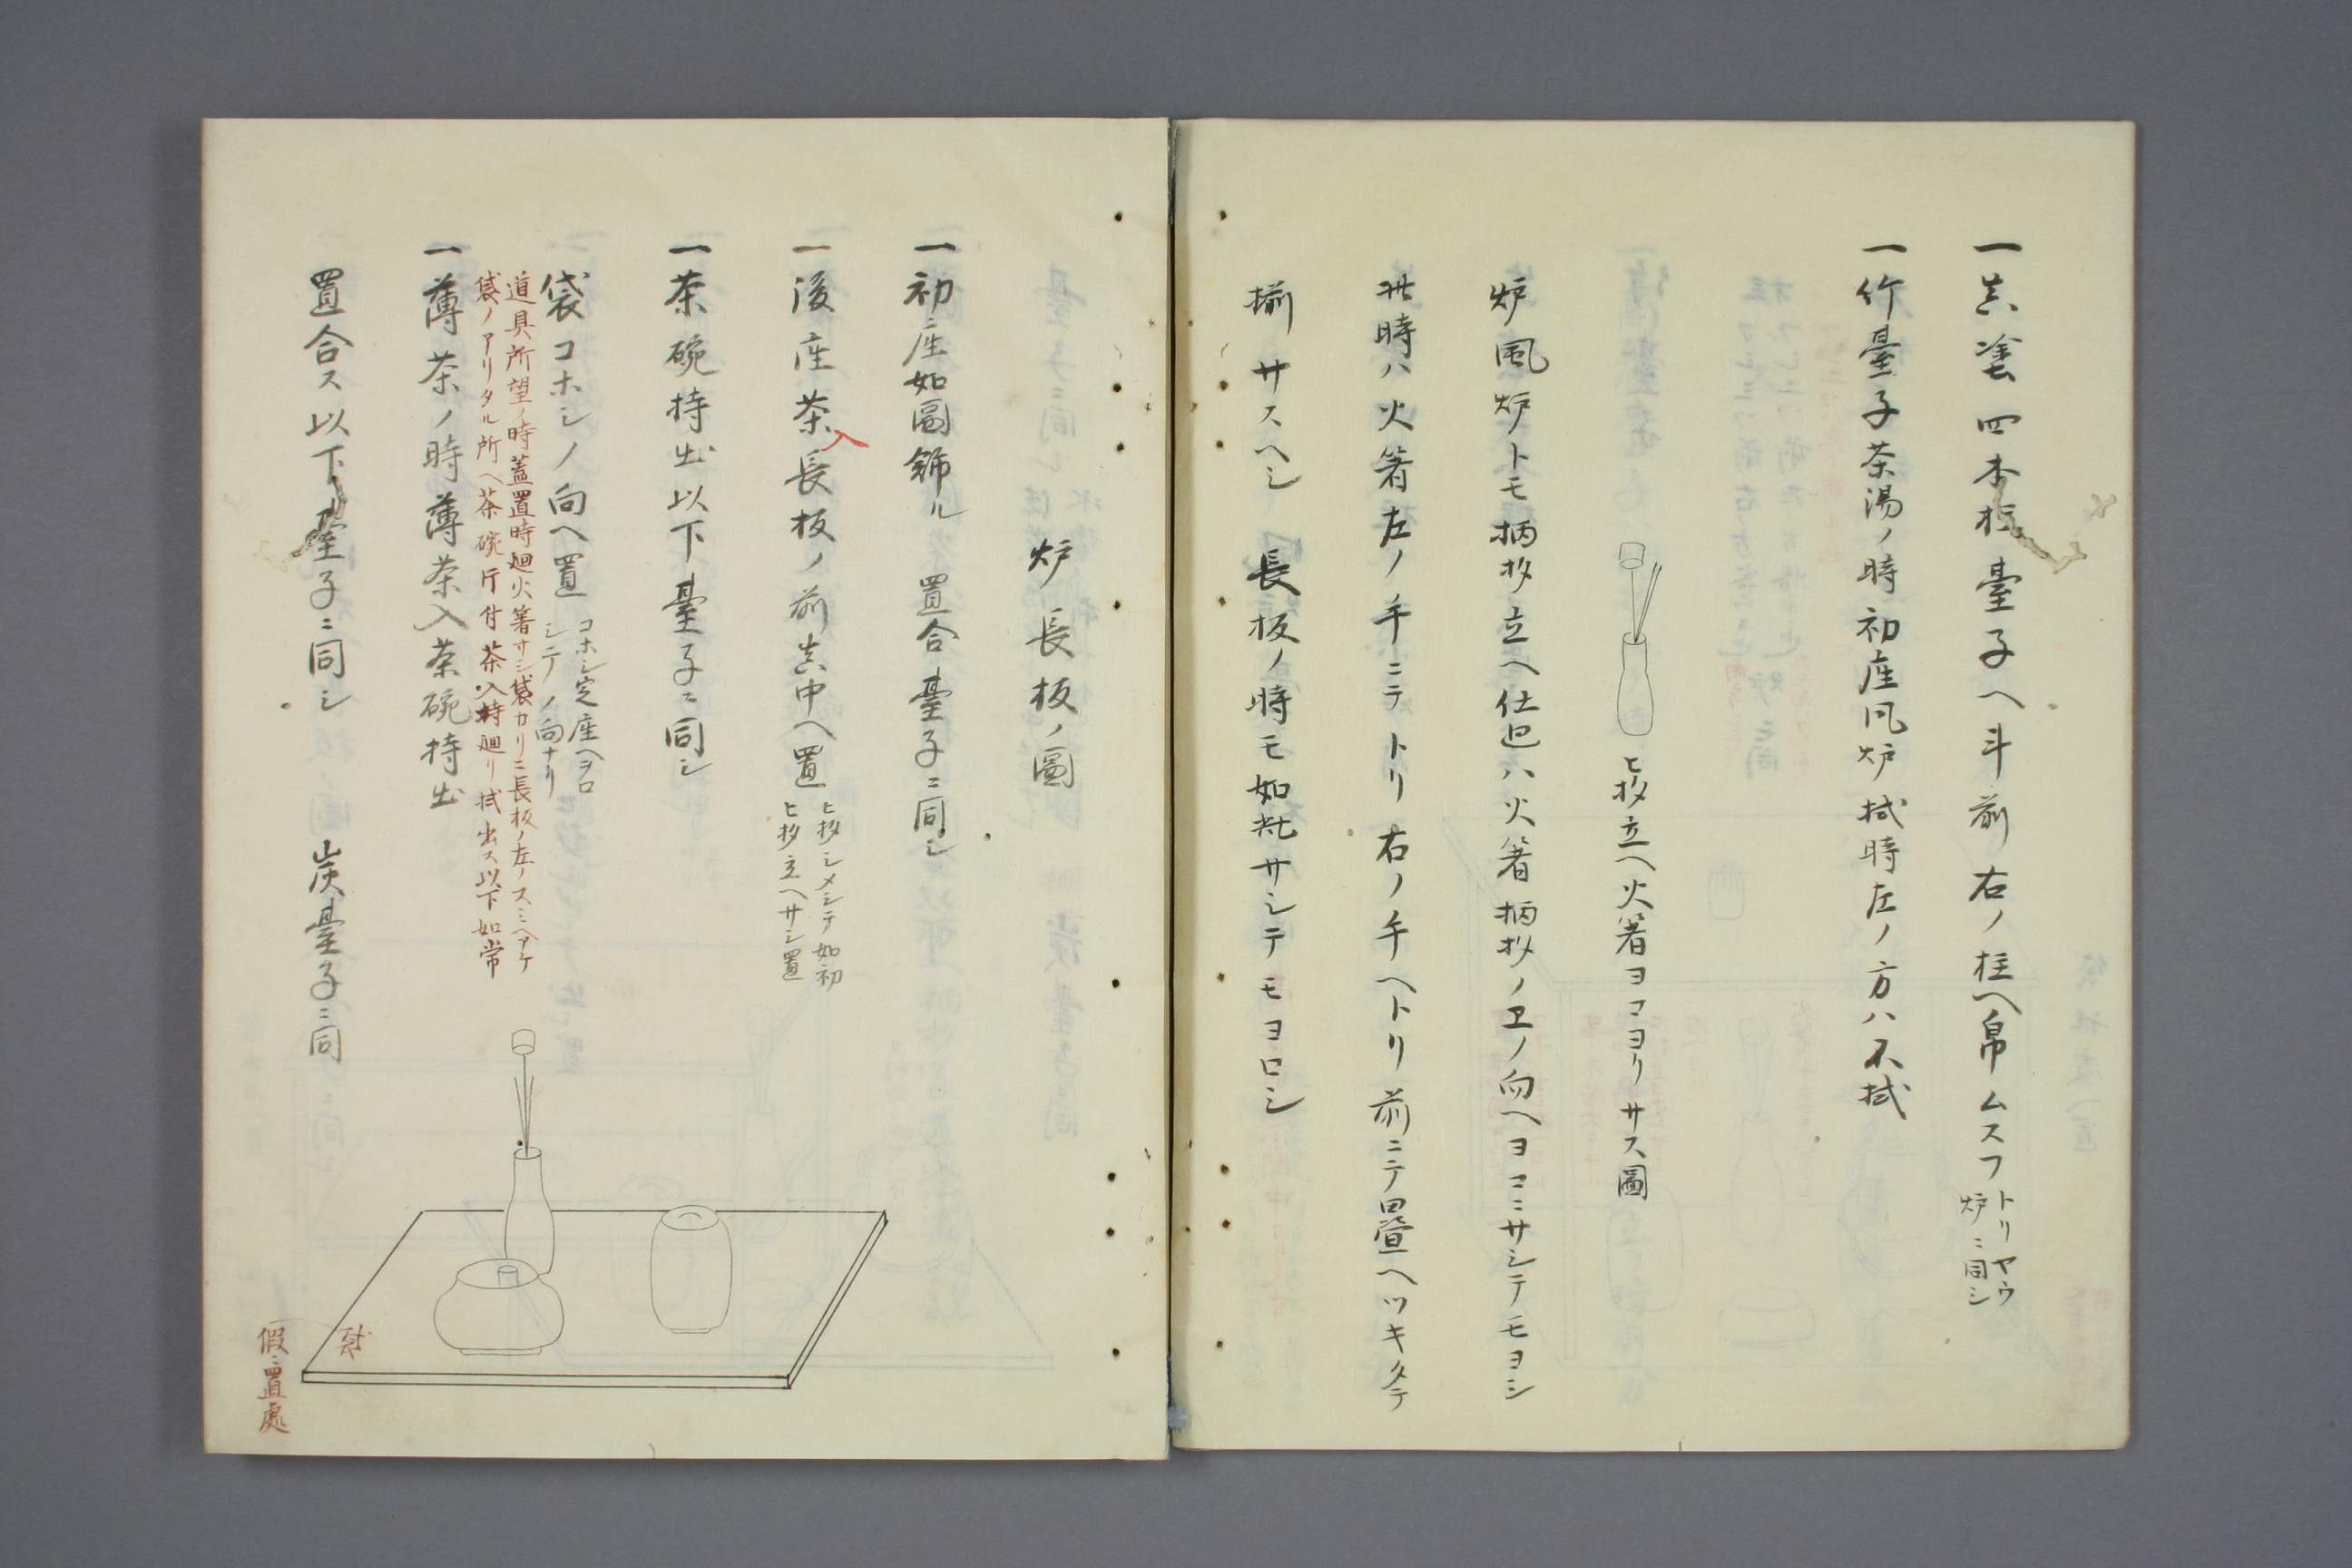 一真塗四本柱臺子ヘ斗前右ノ柱ヘ帛ムスフ
トリヤウ
炉ニ同シ
一竹臺子茶湯ノ時初座風炉拭時左ノ方ハ不拭
ヒ抄立ヘ火箸ヨコヨリサス圖
炉風炉トモ柄抄立ヘ仕込ハ火箸柄抄ノヱノ向ヘヨコニサシテモヨシ
此時ハ火箸左ノ手ニテトリ右ノ手ヘトリ前ニテ疊ヘツキタテ
揃サスヘシ 長板ノ時モ如此サシテモヨロシ
炉長板ノ圖
一初座如圖餝ル 置合臺子ニ同シ
一後座茶入長板ノ前真中ヘ置
ヒ抄シメシテ如初
ヒ抄立ヘサシ置
一茶碗持出以下臺子ニ同シ
袋コホシノ向ヘ置
コホシ定座ヘヲロ
シテノ向ナリ
道具所望ノ時蓋置時廻火箸サシ袋カリニ長板ノ左ノスミヘアケ
袋ノアリタル所ヘ茶碗片付茶入持廻リ拭出ス以下如常
一薄茶ノ時薄茶入茶碗持出
置合ス以下臺子ニ同シ 炭臺子ニ同
袋
假ニ置處